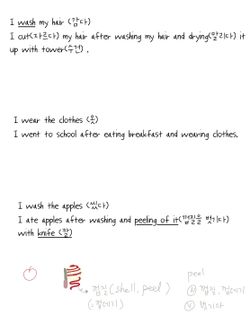 I wash my hair (감다)
I cut(자르다) my hair after washing my hair and drying(말리다) it
up with tower(수건) .
I wear the clothes (옷)
I went to school after eating breakfast and wearing clothes.
I wash the apples (씻다)
I ate apples after washing and peeling of it(껍질을 벗기다)
with knife (칼)
peel
껍질 (shell, peel)
(=껍데기)
ⓝ 껍질, 껍데기
ⓥ 벗기다